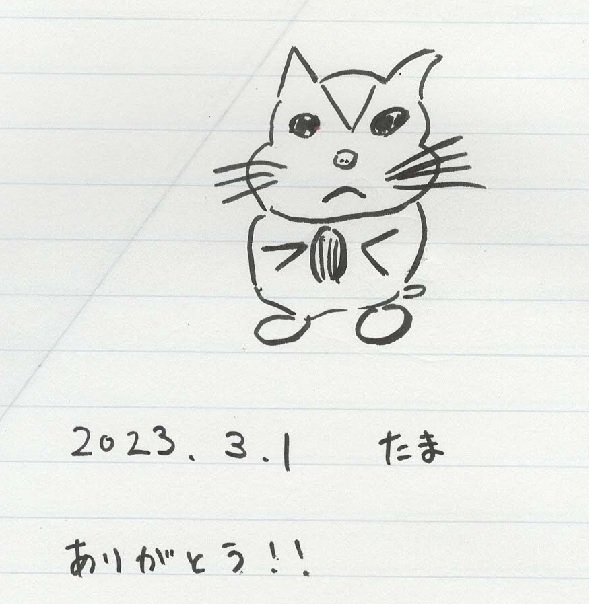 2023.3.1 たま
ありがとう!!